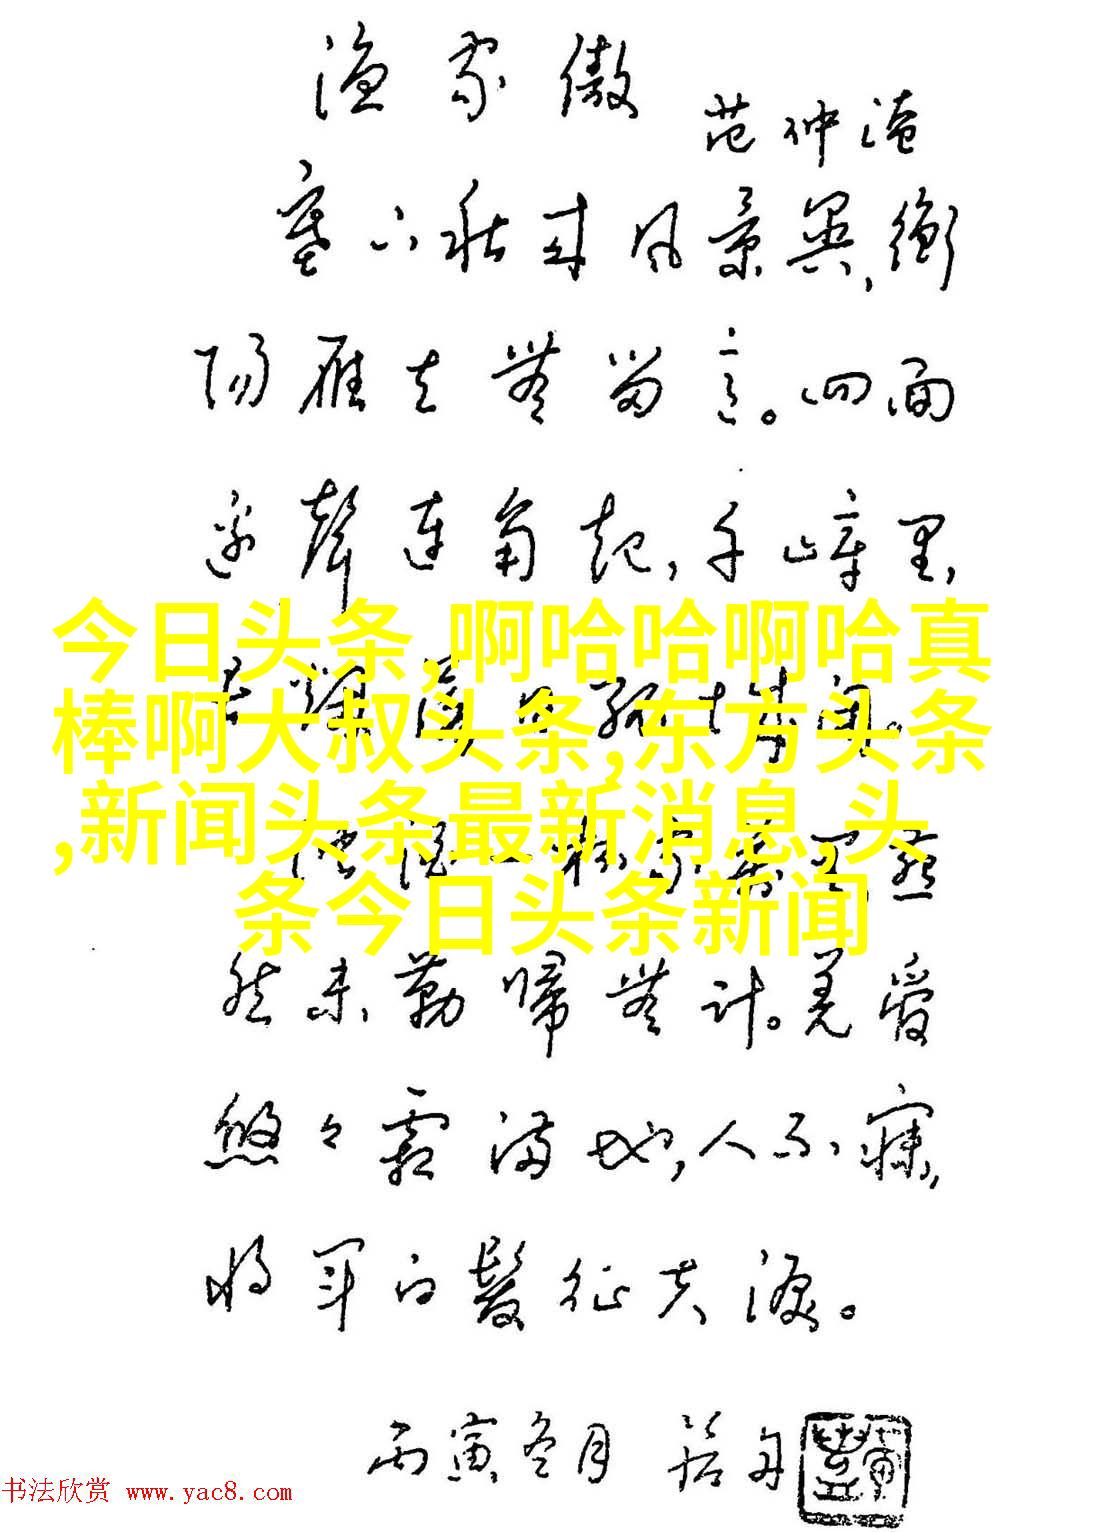 渔家傲
范仲淹
塞下秋来风景異,衡
阳雁去無留意。四面
边聲连角起,千嶂里,
今日头条,啊哈哈啊哈真
長煙落日孤城闭。
棒啊大叔头条,东方头条
,新闻头条最新消息,头
浊酒一杯家萬里,燕
条今日头条新闻
然未勒歸無计。羌管
悠々霜满地,人不寐,
将军白髮征夫淚。
丙寅冬月
书法欣赏 www.yac8.com